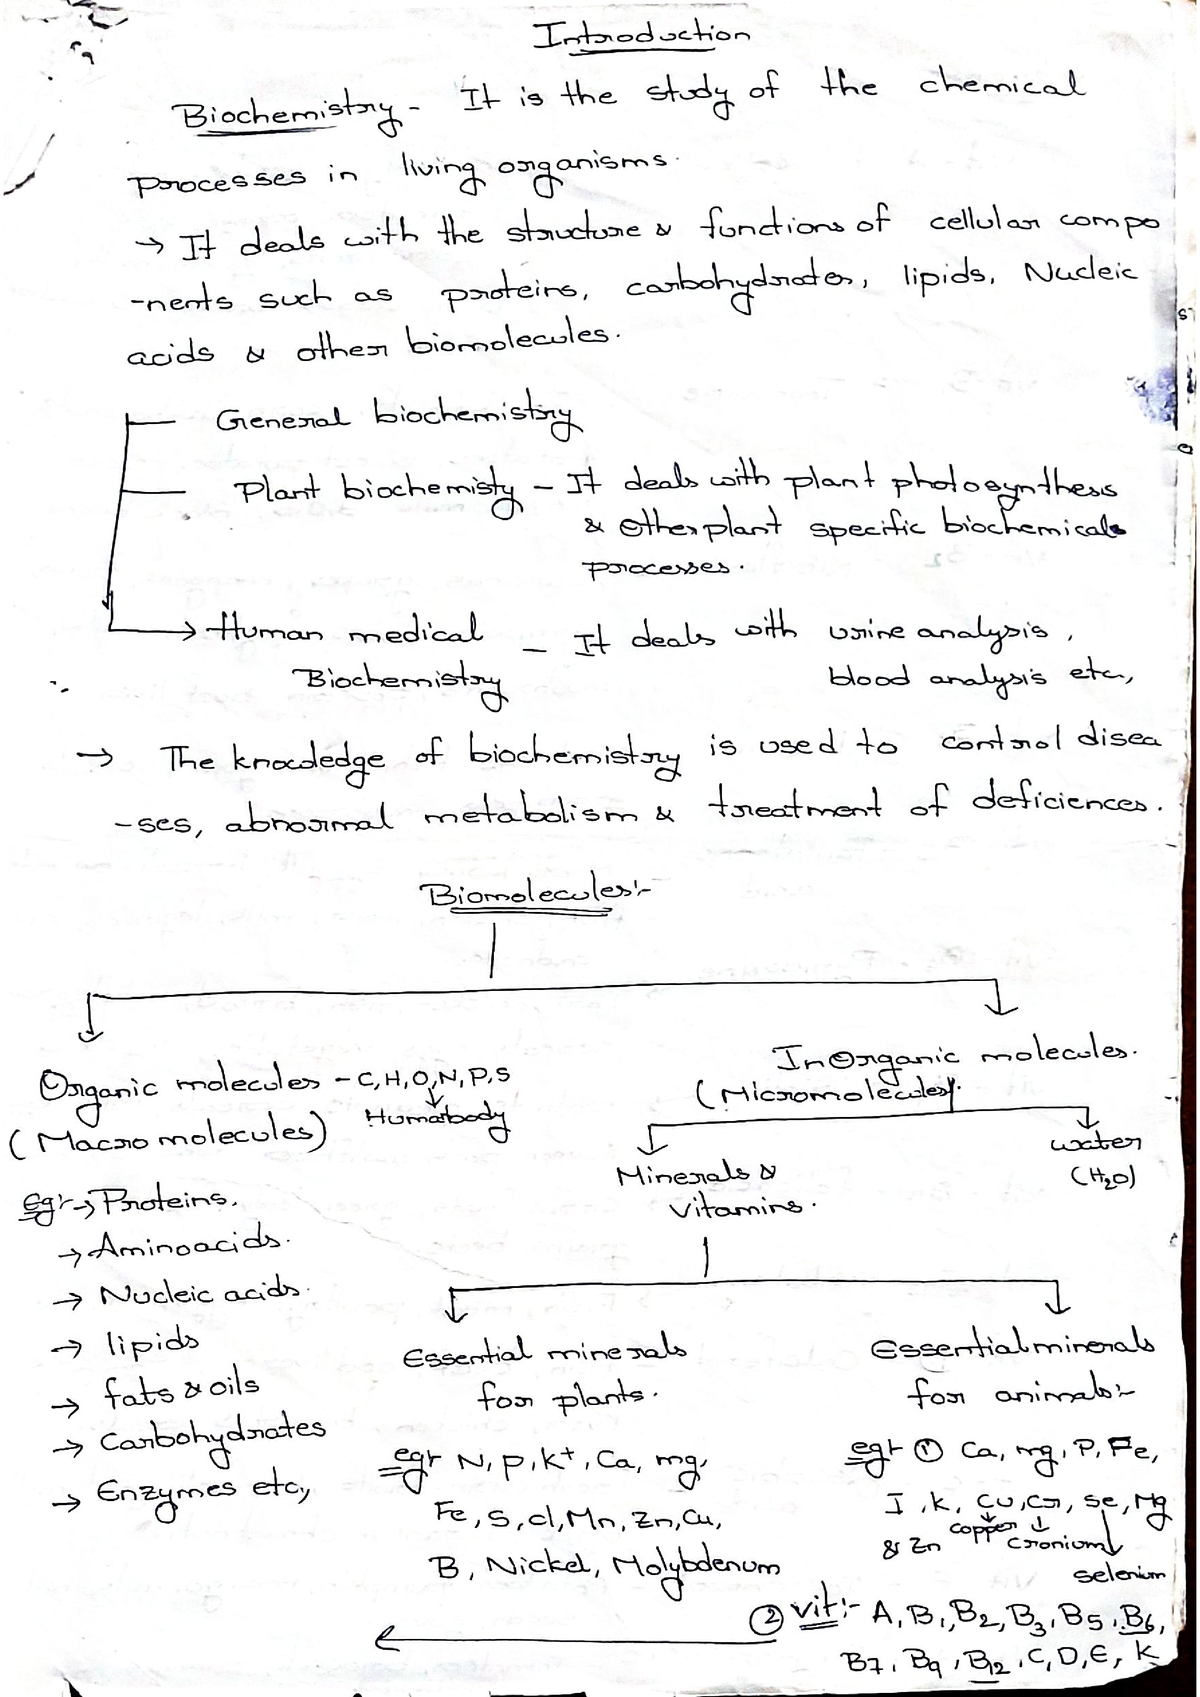 Introduction
Biochemistry - It is the study of the chemical
processes in living organisms.
→ It deals with the structure & functions of cellular compo
-nents such as proteins, carbohydrates, lipids, Nucleic
acids & other biomolecules.
General biochemistry
Plant biochemisty - It deals with plant photosynthesis
& other plant specific biochemicals
processes.
→ Human medical - It deals with urine analysis,
Biochemistry blood analysis etc.,
→ The knowledge of biochemistry is used to control disea
-ses, abnormal metabolism & treatment of deficiences.
Biomolecules:-
Organic molecules - C, H, O, N, P, S
Humanbody
(Macro molecules)
eg:- → Proteins.
→ Aminoacids.
→ Nucleic acids.
→ lipids
→ fats & oils
→ Carbohydrates
→ Enzymes etc,
InOrganic molecules.
(Micromolecules).
Minerals &
vitamins.
water
(H2O)
Essential minerals
for plants.
eg:- N, P, K+, Ca, mg,
Fe, S, cl, Mn, Zn, Cu,
B, Nickel, Molybdenum
Essential minerals
for animals:-
eg:- ① Ca, mg, P, Fe,
I, K, Cu, Cr, Se, Mg
& Zn copper cronium
selenium
② vit:- A, B1, B2, B3, B5, B6,
B7, B9, B12, C, D, E, K